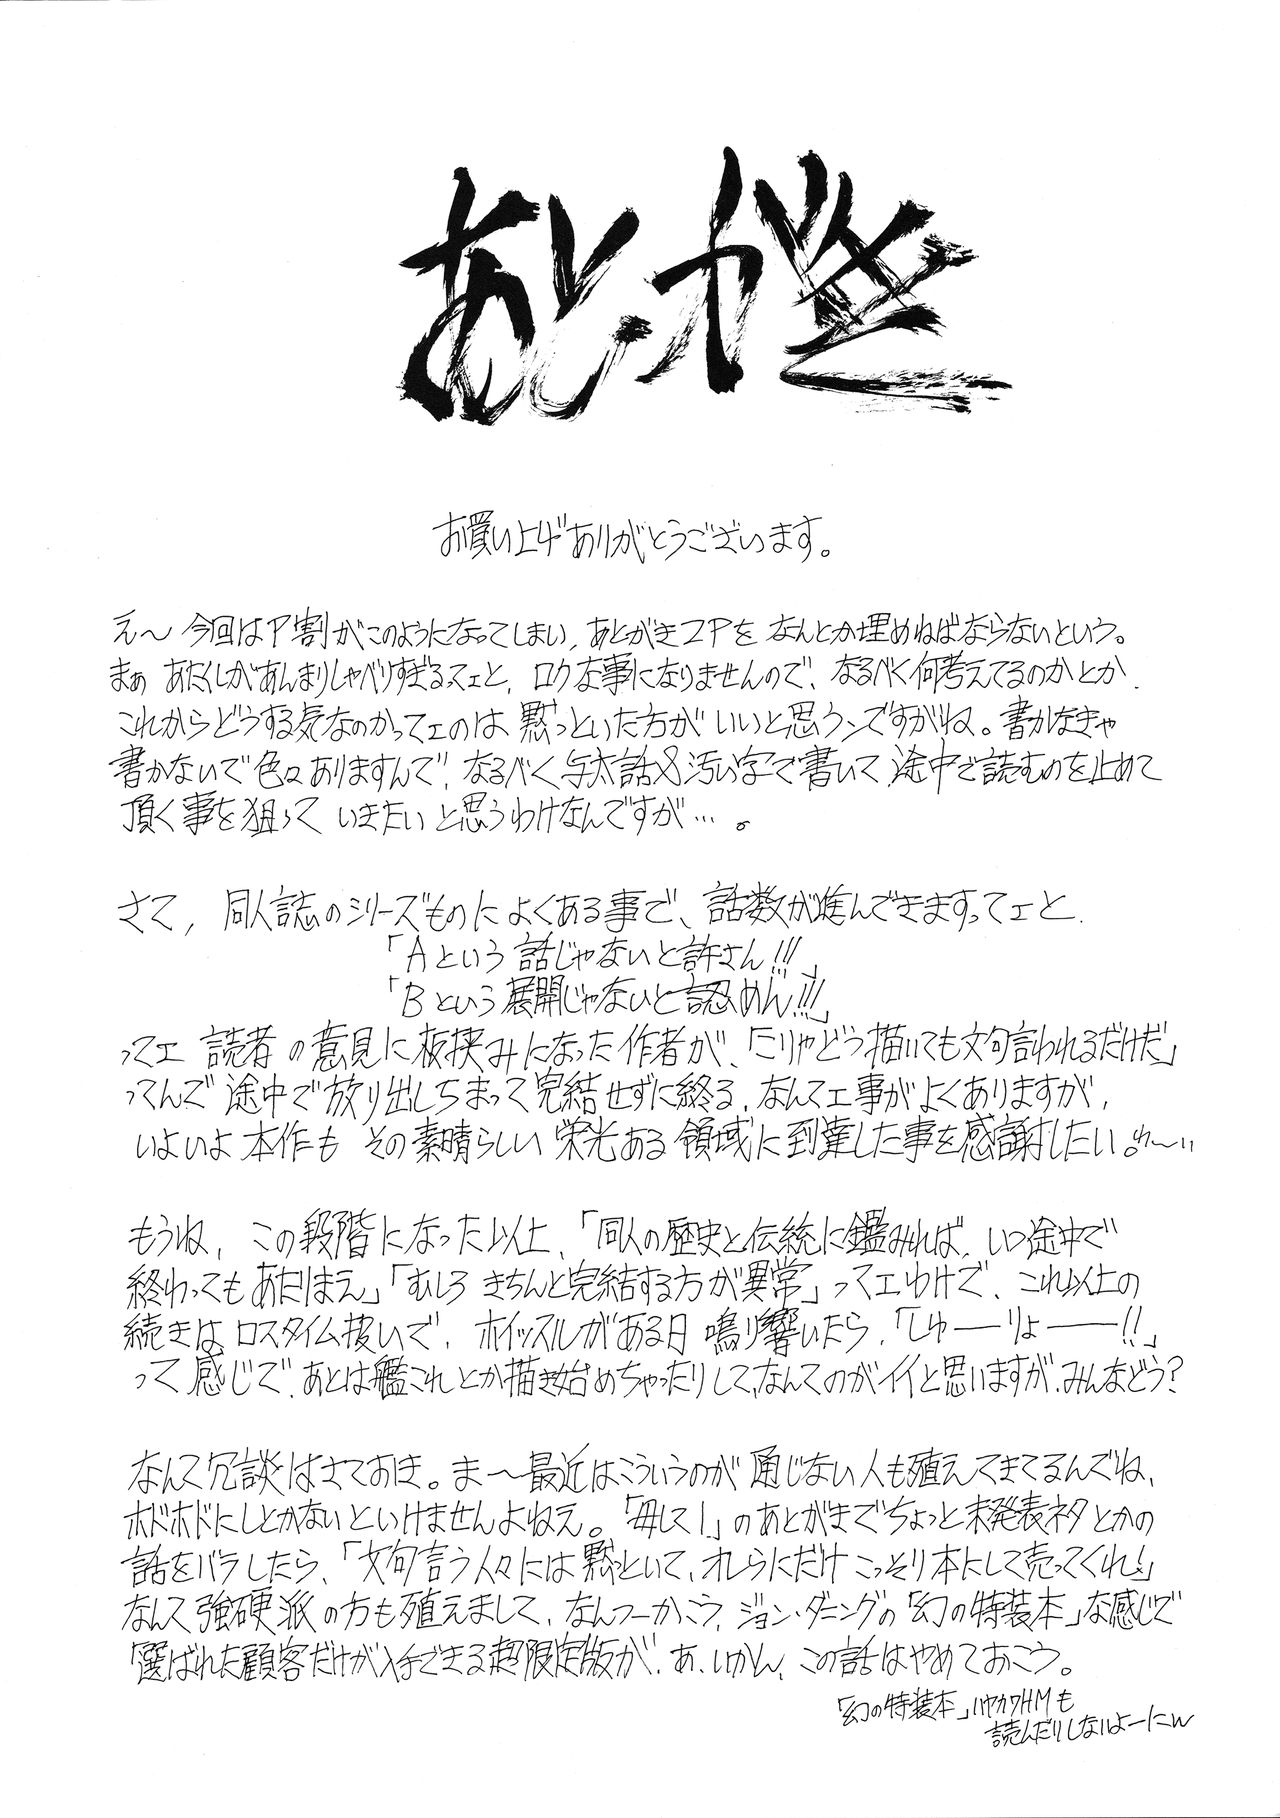 あとがき
お買い上げありがとうございます。
え～今回はP割がこのようになってしまい、あとがき2Pをなんとか埋めねばならないという。
まぁあたくしがあんまりしゃべりすぎるってェと、ロクな事になりませんので、なるべく何考えてるのかとか
これからどうする気なのかってェのは黙っといた方がいいと思うンですがね。書かなきゃ
書かないで色々ありますんで、なるべく与太話&汚い字で書いて途中で読むのを止めて
頂く事を狙っていきたいと思うわけなんですが…。
さて、同人誌のシリーズものによくある事で、話数が進んできますってェと、
「Aという話じゃないと許さん!!!」
「Bという展開じゃないと認めん!!!」
ってェ読者の意見に板挟みになった作者が、「こりゃどう描いても文句言われるだけだ」
ってんで途中で放り出しちまって完結せずに終る、なんてェ事がよくありますが、
いよいよ本作もその素晴らしい栄光ある領域に到達した事を感謝したい。わ～い
もうね、この段階になった以上、「同人の歴史と伝統に鑑みれば、いつ途中で
終わってもあたりまえ」「むしろきちんと完結する方が異常」ってェわけで、これ以上の
続きはロスタイム扱いで、ホイッスルがある日鳴り響いたら、「しゅーーりょーーー!!」
って感じで、あとは艦これとか描き始めちゃったりして、なんてのがイイと思いますが、みんなどう?
なんて冗談はさておき。ま～最近はこういうのが通じない人も殖えてきてるんでね、
ホドホドにしとかないといけませんよねえ。「毎して！」のあとがきでちょっと未発表ネタとかの
話をバラしたら、「文句言う人々には黙っといて、オレらにだけこっそり本にして売ってくれ!」
なんて強硬派の方も殖えまして、なんつーかこう、ジョン・ダニングの「幻の特装本」な感じで
「選ばれた顧客だけが入手できる超限定版が、あ、いかん、この話はやめておこう。
「幻の特装本」ハヤカワHMも
読んだりしないよーにw